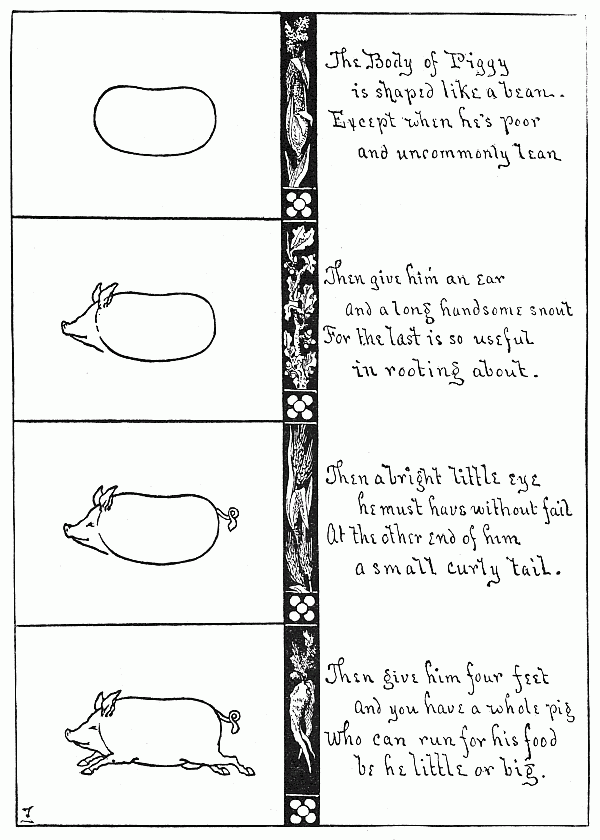 The Body of Piggy
is shaped like a bean.
Except when he's poor
and uncommonly lean
Then give him an ear
and a long handsome snout
For the last is so useful
in rooting about.
Then a bright little eye
he must have without fail
At the other end of him
a small curly tail.
Then give him four feet
and you have a whole pig
Who can run for his food
be he little or big.